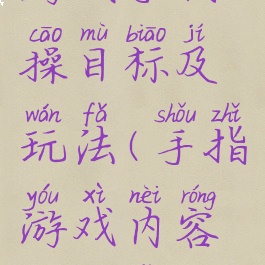 cāo mù biāo jí
操目标及
wán fǎ shǒu zhǐ
玩法(手指
yóu xì nèi róng
游戏内容